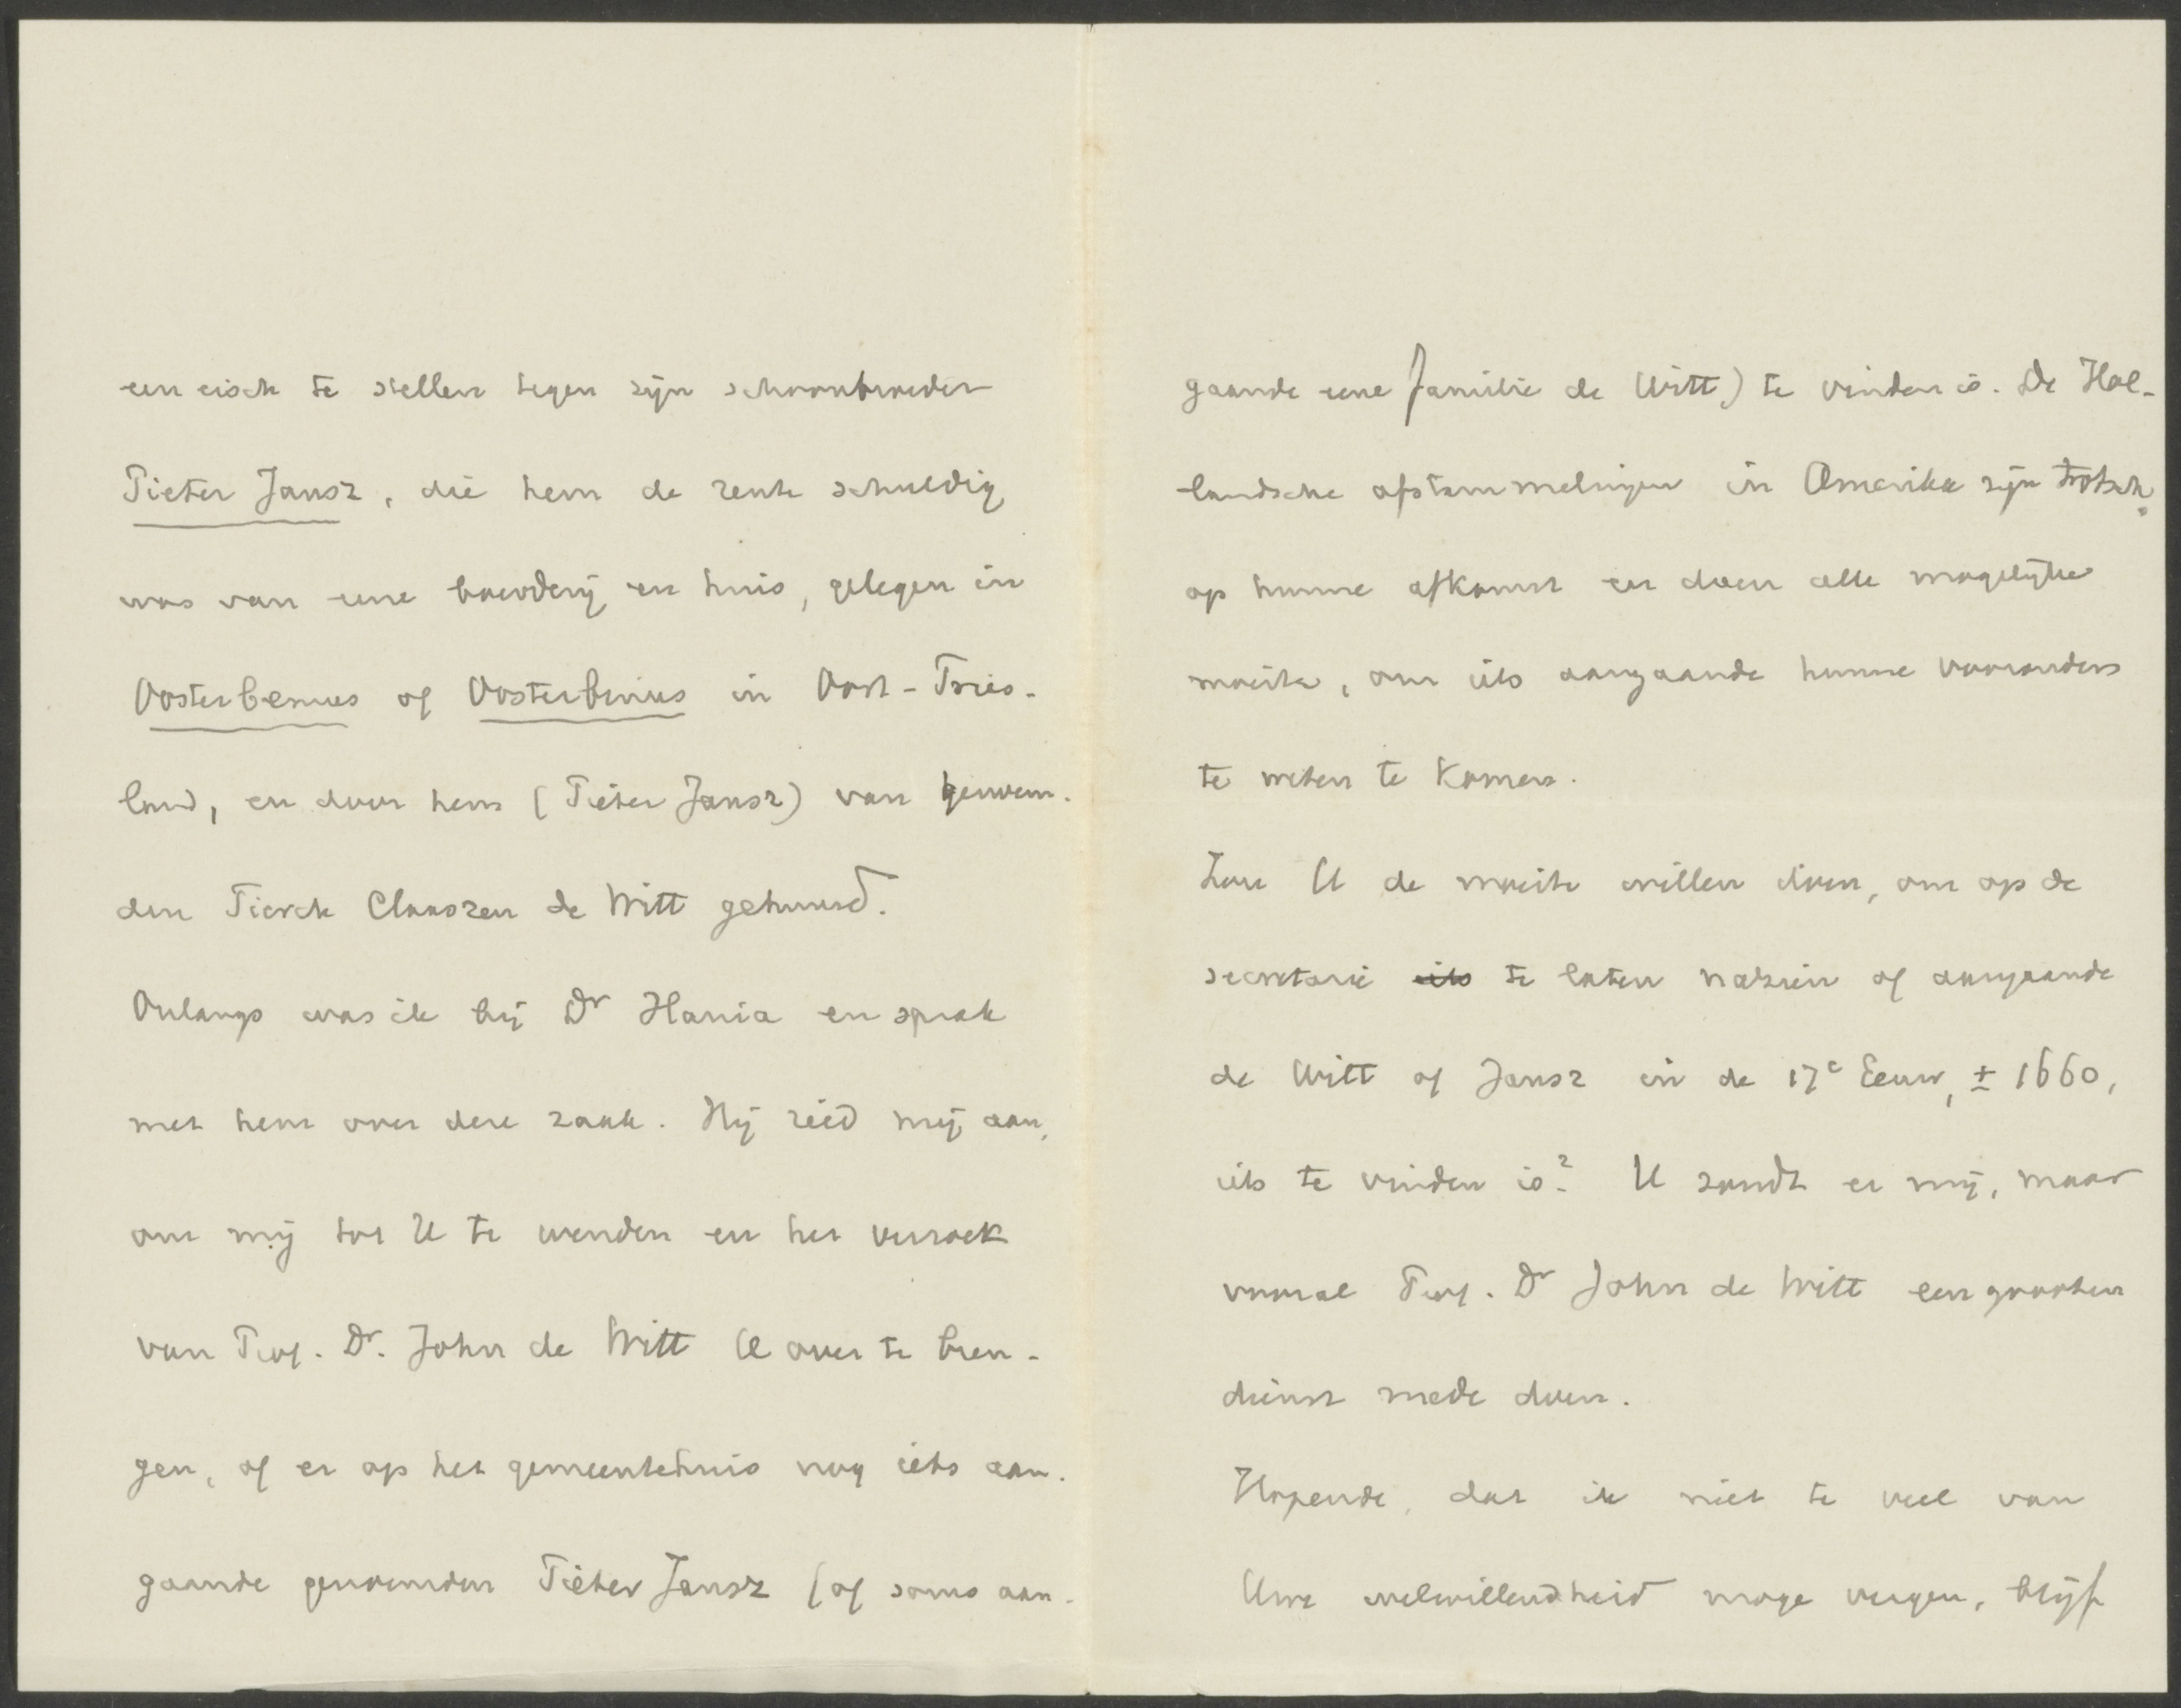 een eisch te stellen tegen zijn schoonbroeder
Pieter Jansz, die hem de rente schuldig
was van eene boerderij en huis, gelegen in
Oosterbemus of Oosterbinius in Oost-Fries-
land, en door hem (Pieter Jansz) van genoem-
den Tierck Claaszen de Witt gehuurd.
Onlangs was ik bij Dr Hania en sprak
met hem over deze zaak. Hij ried mij aan,
om mij tot U te wenden en het verzoek
van Prof. Dr. John de Witt U over te bren-
gen, of er op het gemeentehuis nog iets aan-
gaande genoemden Pieter Jansz (of soms aan-
gaande eene familie de Witt) te vinden is. De Hol-
landsche afstammelingen in Amerika zijn trotsch
op hunne afkomst en doen alle mogelijke
moeite, om iets aangaande hunne voorouders
te weten te komen.
Zou U de moeite willen doen, om op de
secretarie iets te laten nazien of aangaande
de Witt of Jansz in de 17e Eeuw, ± 1660,
iets te vinden is? U zoudt er mij, maar
vooral Prof. Dr John de Witt een grooten
dienst mede doen.
Hopende, dat ik niet te veel van
Uwe welwillendheid moge vergen, blijf